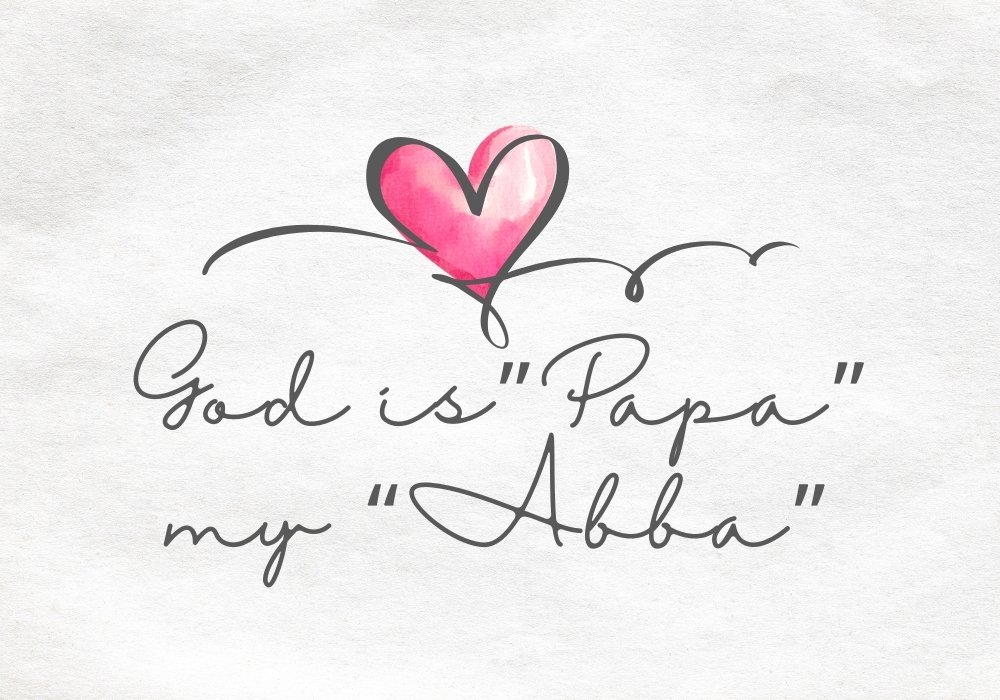 God is "Papa"
my "Abba"